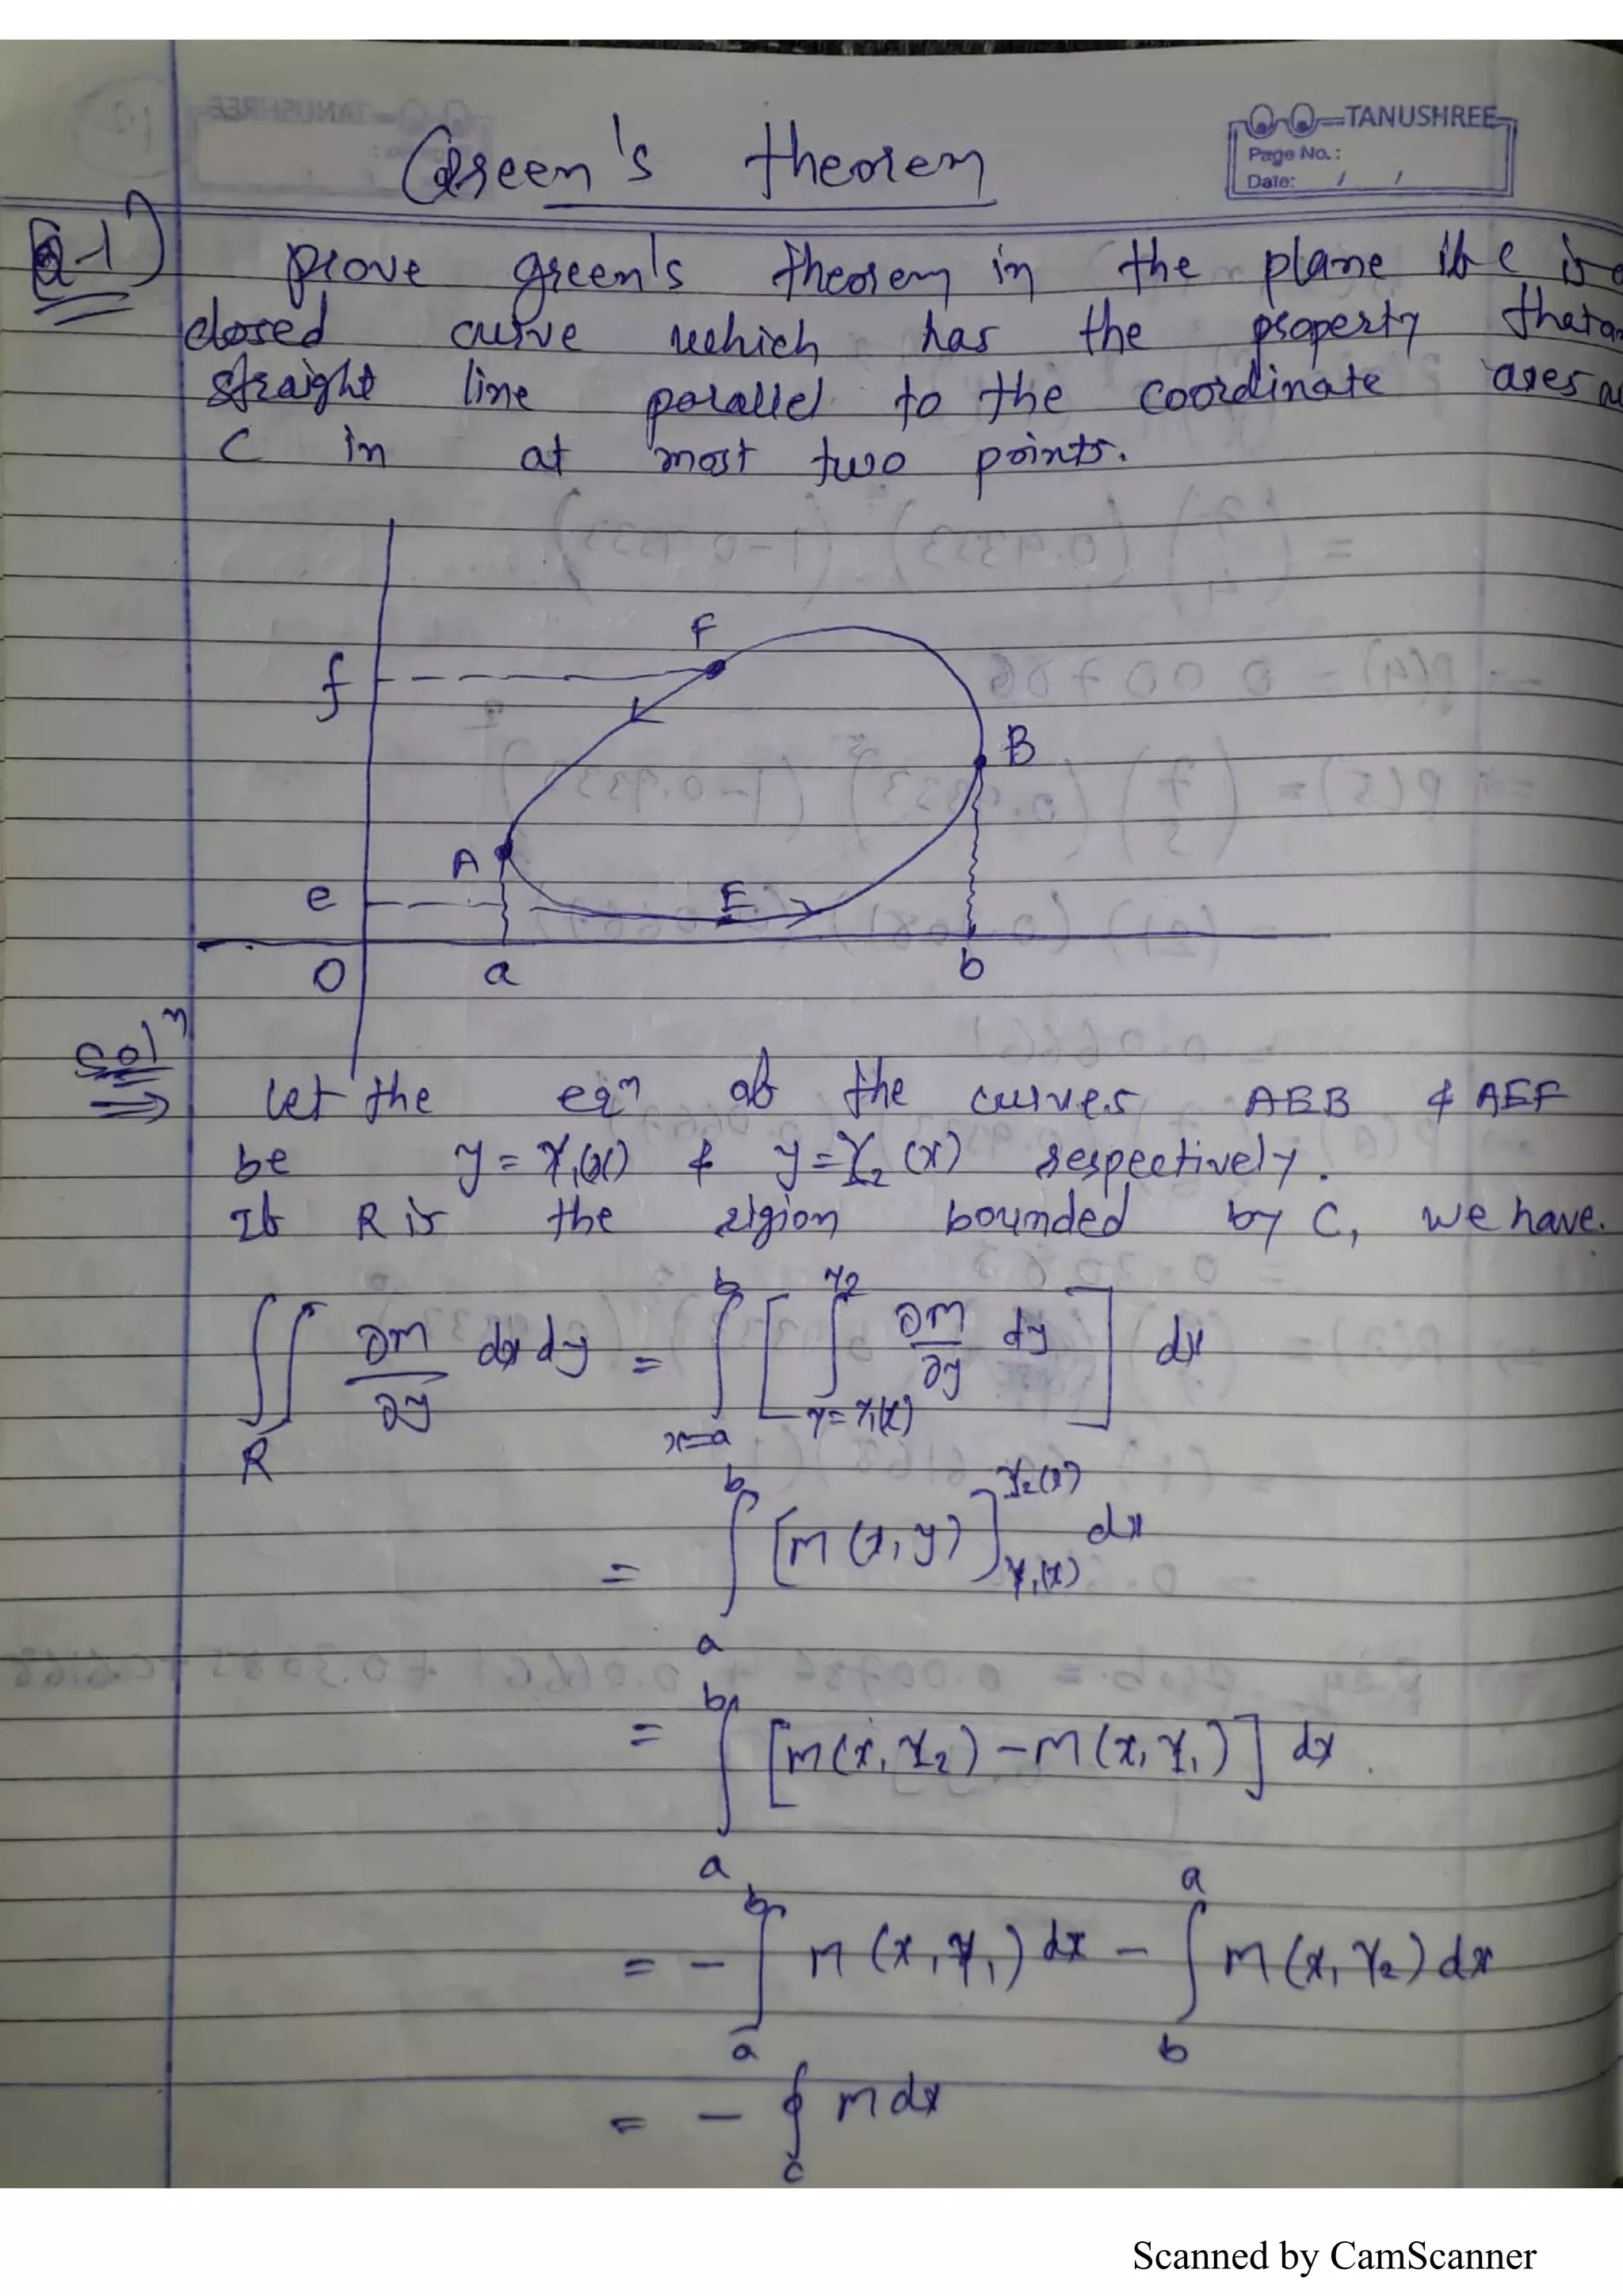 TANUSHREE
Page No.:
Date: / /
Green's theorem
Q-1)
prove green's theorem in the plane if c is a
closed curve which has the property that a
straight line parallel to the coordinate axes
C in at most two points.
F
f
B
A
E
e
O a b
Solⁿ
⇒ Let the eqⁿ of the curves AEB & AEF
be y = Y₁(x) & y = Y₂ (x) respectively.
If R is the rigion bounded by C, we have.
∬_R ∂M/∂y dx dy = ∫_{x=a}^{b} [ ∫_{y=Y₁(x)}^{Y₂} ∂M/∂y dy ] dx
= ∫_a^b [M (x, y)]_{Y₁(x)}^{Y₂(x)} dx
= ∫_a^b [M(x, Y₂) - M(x, Y₁)] dx
= - ∫_a^b M (x, Y₁) dx - ∫_b^a M (x, Y₂) dx
= - ∮_c M dx
Scanned by CamScanner